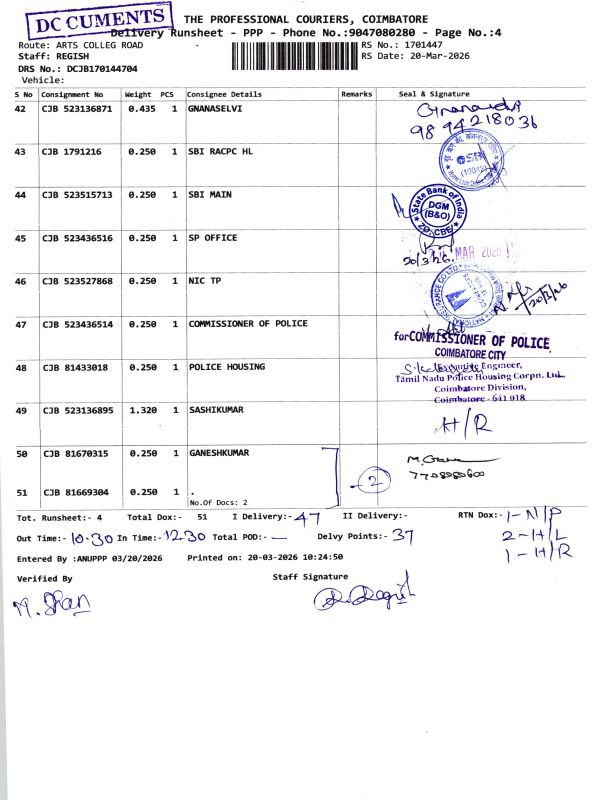 DC CUMENTS
THE PROFESSIONAL COURIERS, COIMBATORE
Delivery Runsheet - PPP - Phone No.:9047080280 - Page No.:4
Route: ARTS COLLEG ROAD
RS No.: 1701447
Staff: REGISH
RS Date: 20-Mar-2026
DRS No.: DCJB170144704
Vehicle:
S No Consignment No Weight PCS Consignee Details Remarks Seal & Signature
42 CJB 523136871 0.435 1 GNANASELVI
9894218036
43 CJB 1791216 0.250 1 SBI RACPC HL
SBI
(10042)
44 CJB 523515713 0.250 1 SBI MAIN
State Bank of India
DGM
(B&O)
ZO, CBE
45 CJB 523436516 0.250 1 SP OFFICE
MAR 2026
20/3/26.
46 CJB 523527868 0.250 1 NIC TP
20/3/26
47 CJB 523436514 0.250 1 COMMISSIONER OF POLICE
for COMMISSIONER OF POLICE
COIMBATORE CITY
48 CJB 81433018 0.250 1 POLICE HOUSING
Executive Engineer,
Tamil Nadu Police Housing Corpn. Ltd.
Coimbatore Division,
Coimbatore - 641 018
49 CJB 523136895 1.320 1 SASHIKUMAR
H/R
50 CJB 81670315 0.250 1 GANESHKUMAR
7708980600
51 CJB 81669304 0.250 1 .
No.Of Docs: 2
2
Tot. Runsheet:- 4 Total Dox:- 51 I Delivery:- 47 II Delivery:- RTN Dox:- 1-N/P
2-H/L
1-H/R
Out Time:- 10.30 In Time:- 12.30 Total POD:- — Delvy Points:- 37
Entered By :ANUPPP 03/20/2026 Printed on: 20-03-2026 10:24:50
Verified By
Staff Signature